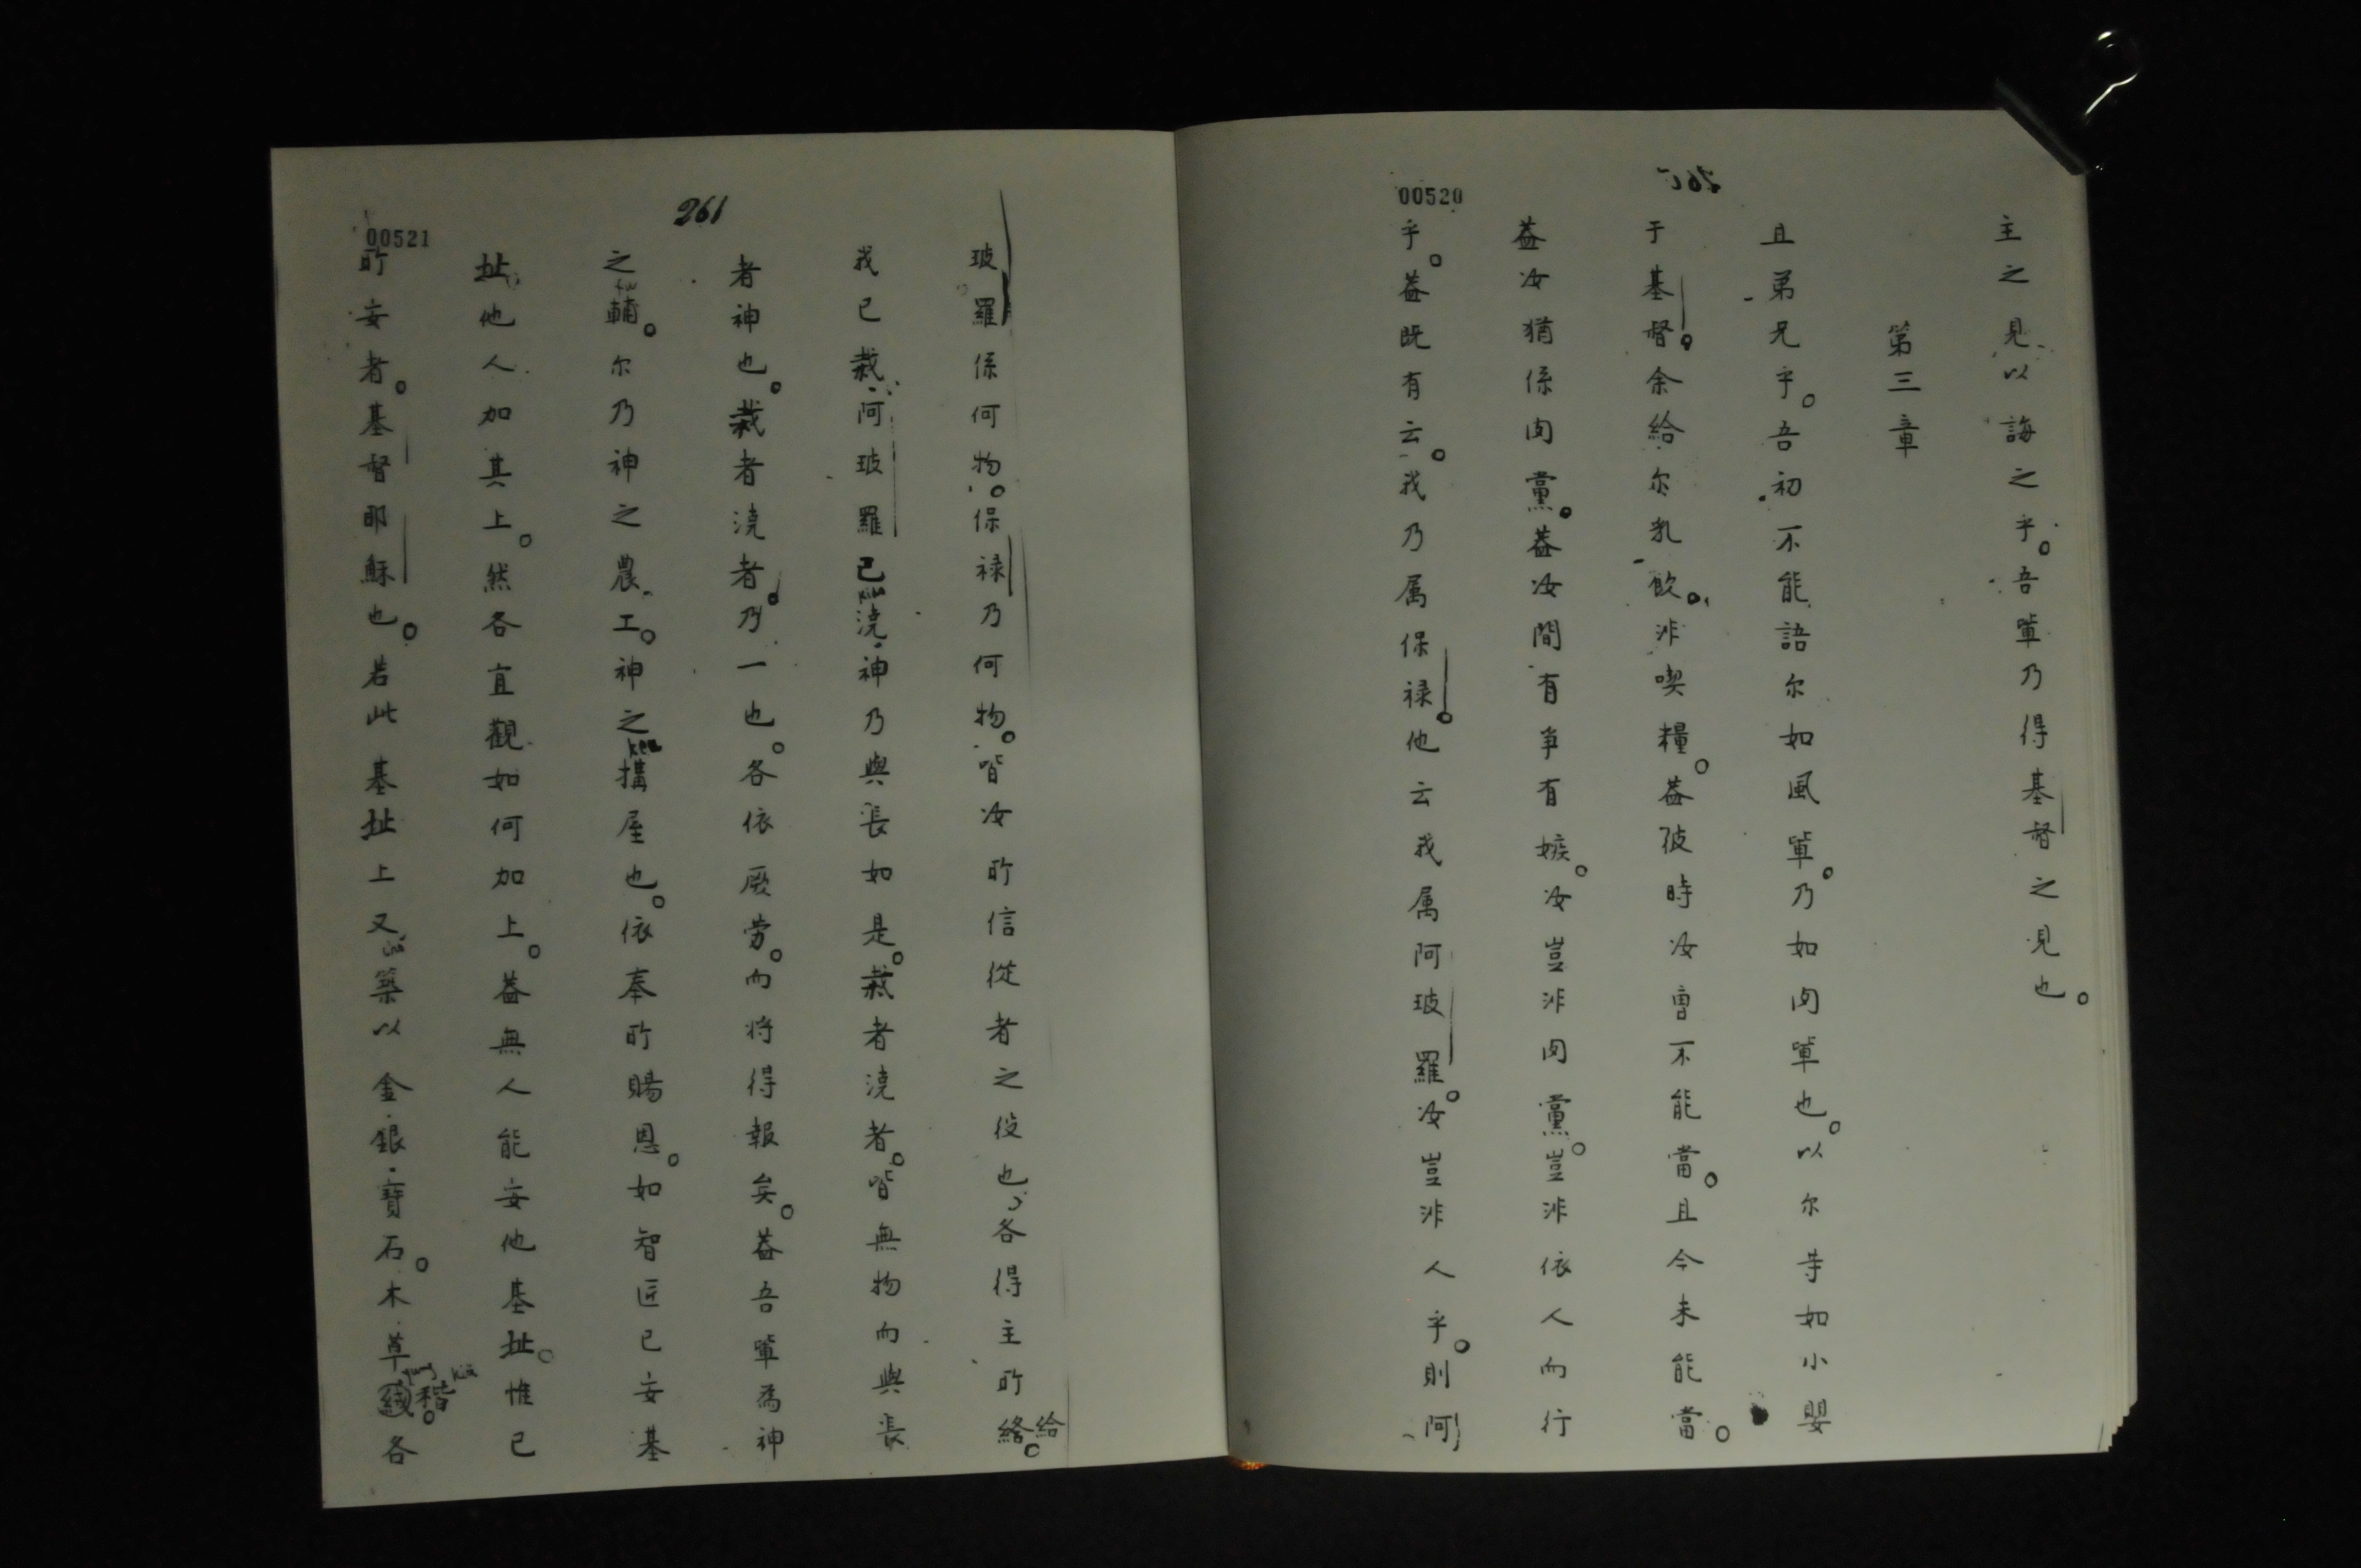 00520
主之見以誨之乎。吾軰乃得基督之見也。
第三章
且弟兄乎。吾初不能語尔如風軰。乃如肉軰也。以尔等如小嬰
于基督。余給尔乳飲。非喫糧。葢彼時汝曾不能當。且今未能當。
葢汝猶係肉黨。葢汝間有爭有嫉。汝豈非肉黨。豈非依人而行
乎。葢既有云。我乃属保禄。他云我属阿玻羅。汝豈非人乎。則阿
261
00521
玻羅係何物。保禄乃何物。皆汝所信從者之役也、各得主所絡給。
我已栽、阿玻羅已澆。神乃與長如是。栽者澆者。皆無物而與長
者神也。栽者澆者。乃一也。各依厥劳。而将得報矣。葢吾軰為神
之輔。尔乃神之農工。神之搆屋也。依奉所賜恩。如智匠已妄基
址、他人加其上。然各宜觀如何加上。葢無人能妄他基址。惟已
所妄者。基督耶穌也。若此基址上又築以金、銀、寶石。木、草稭。各